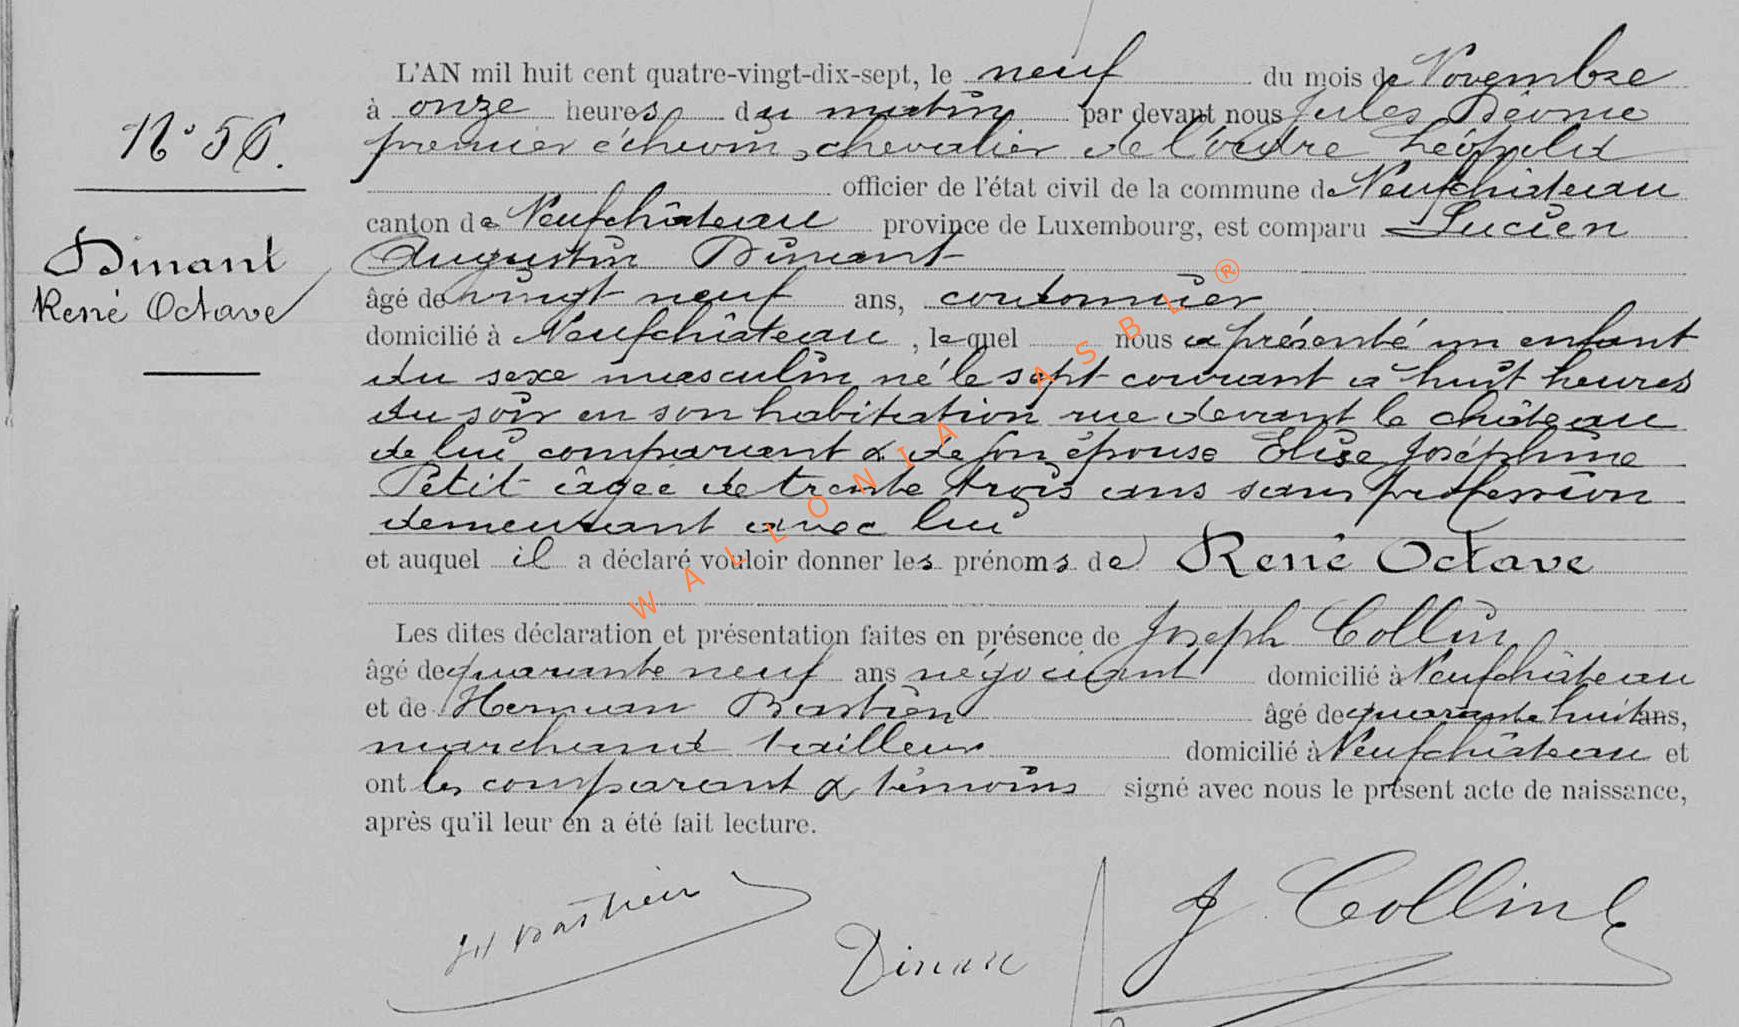 L'AN mil huit cent quatre-vingt-dix-sept, le neuf du mois de Novembre
à onze heures du matin par devant nous Jules
premier échevin, chevalier de l'ordre Léopold
officier de l'état civil de la commune de Neufchâteau
canton de Neufchâteau province de Luxembourg, est comparu Lucien
Augustin Dinant
âgé de vingt neuf ans, cordonnier
domicilié à Neufchâteau, lequel nous a présenté un enfant
du sexe masculin né le sept courant à huit heures
du soir en son habitation rue devant le château
de lui comparant & de son épouse Elise Joséphine
Petit âgée de trente trois ans sans profession
demeurant avec lui
et auquel il a déclaré vouloir donner les prénoms de René Octave
Les dites déclaration et présentation faites en présence de Joseph Collin
âgé de quarante neuf ans négociant domicilié à Neufchâteau
et de Herman Bastien âgé de quarante huit ans,
marchand tailleur domicilié à Neufchâteau et
ont les comparant & témoins signé avec nous le présent acte de naissance,
après qu'il leur en a été fait lecture.
N° 56.
Dinant
René Octave
WALLONIA ASBL ®
H Bastien
Dinant
J Collin